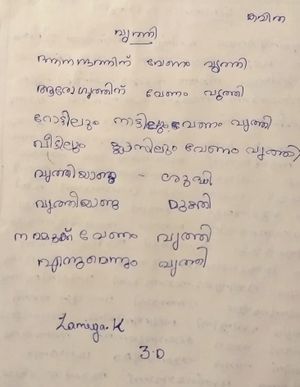 കവിത
വൃത്തി
നന്നാവുന്നതിന് വേണം വൃത്തി
ആരോഗ്യത്തിന് വേണം വൃത്തി
റോട്ടിലും നാട്ടിലും വേണം വൃത്തി
വീട്ടിലും ക്ലാസിലും വേണം വൃത്തി
വൃത്തിയാണു ശുദ്ധി
വൃത്തിയാണു മുക്തി
നമ്മുക്ക് വേണം വൃത്തി
എന്നുമെന്നും വൃത്തി
Lamiya.K
3.D